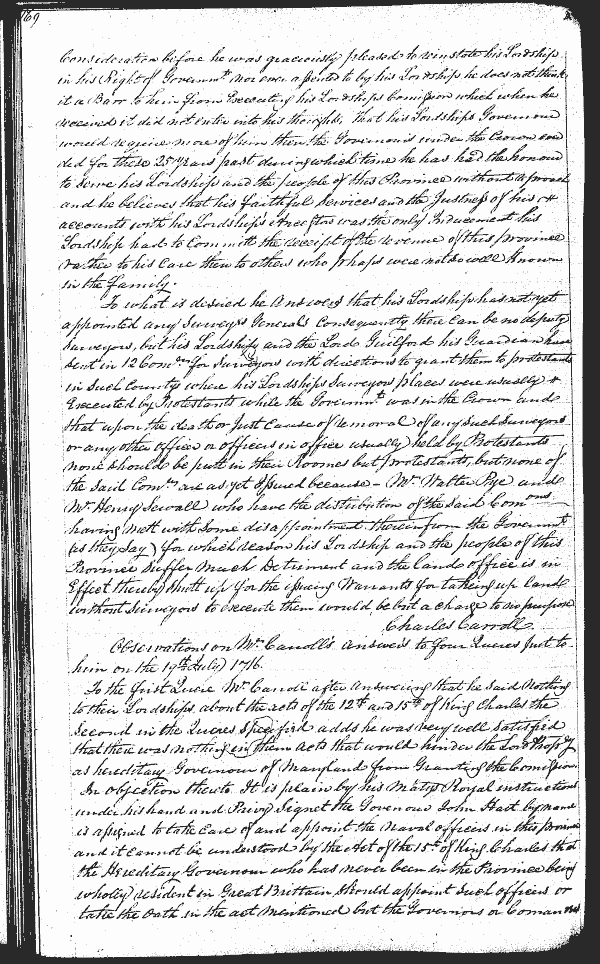 69
Consideration before he was graciously pleased to reinstate his Lordship
in his Right of Governmt. nor ever assented to by his Lordship he does not think
it a Barr to him from Executing his Lordships Comission which when he
received it did not entir into his thoughts, that his Lordships Governour
would require more of him then the Governours under the Crown
ded for these 25 years past during which time he has had the honour
to serve his Lordship and the people of this Province without reproach
and he believes that his faithful Services and the Justness of his
accounts with his Lordships Ancestors was the only Inducement his
Lordship had to Committ the receipt of the revenue of this province
rather to his Care then to others who prhaps were not so well known
in the family.
To what is desired he Answers that his Lordship has not yet
appointed any Surveyrs Generals Consequently there Can be no deputy
Surveyors, but his Lordship and the Lord Guilford his Guardian have
sent in 12 Comons. for Surveyors with directions to grant them to protestants
in Such County where his Lordships Surveyors places were usually
Executed by Protestants while the Governmt. was in the Crown and
that upon the death or Just Cause of removal of any such Surveyors
or any other officer or officers in office usually held by Protestants
none should be putt in their Roomes but protestants, but none of
the said Comons are as yet Issued because Mr. Walter Pye and
Mr. Henry Sewall who have the distribution of the said Comons
having mett with Some disappointment therein from the Governmt.
(as they say) for which reason his Lordship and the people of this
Province suffer Much Detriment and the land office is in
Effect thereby shutt up for the issuing Warrants for takeing up land
without surveyors to execute them would be but a charge to no purpose
Charles Carroll.
Observations on Mr. Carroll's answers to four Queres put to
him on the 19th July 1716.
To the first Quere Mr. Carroll after answering that he said Nothing
to their Lordships about the acts of the 12th and 15th of King Charles the
Second in the Queres Specified adds he was very well Satisfied
that there was nothing in them Acts that would hinder the Lord Propry
as hereditary Governour of Maryland from Granting the Comission.
In objection thereto It is plain by his Matys Royal instructions
under his hand and Privy Signet the Govenour John Hart by name
is assigned to take Care of and appoint the Naval officers in this province
and it cannot be understood by the Act of the 15th of King Charles that
the Hereditary Governour who has never been in the Province being
wholly resident in Great Brittain should appoint such officers or
take the Oath in the act mentioned but the Governors or Comanders